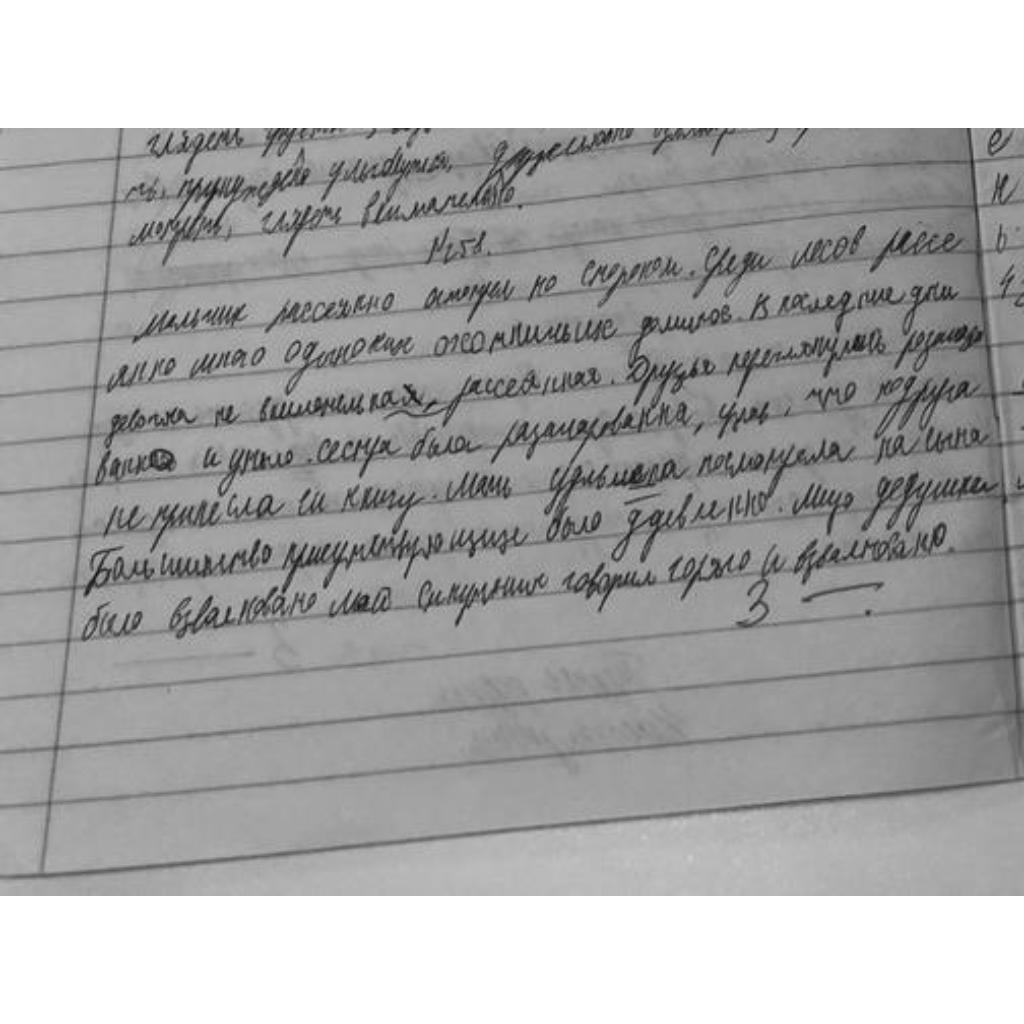 глядеть
ть, принуждённо улыбнуться, дружественно
смотреть, глядеть внимательно.
№258.
Мальчик рассеянно смотрел по сторонам. Среди лесов рассе
янно много одиноких охотничьих домиков. В последние дни
девочка не внимательная, рассеянная. Друзья переглянулись разочаро
ванно и уныло. Сестра была разачарованна, узнав, что подруга
не принесла ей книгу. Мать удивлённа посмотрела на сына
Большинство присутствующих было удевленно. Лицо дедушки
было взволновано Мой спутник говорил горячо и взволновано.
3 —.
е
н
ь